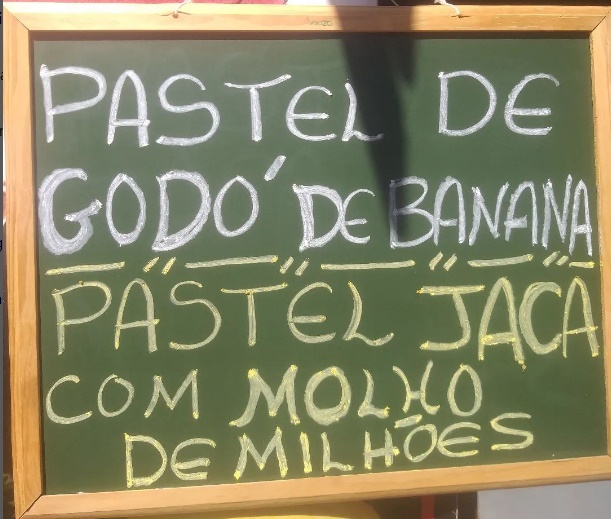 PASTEL DE
GODÓ DE BANANA
PASTEL JACA
COM MOLHO
DE MILHÕES